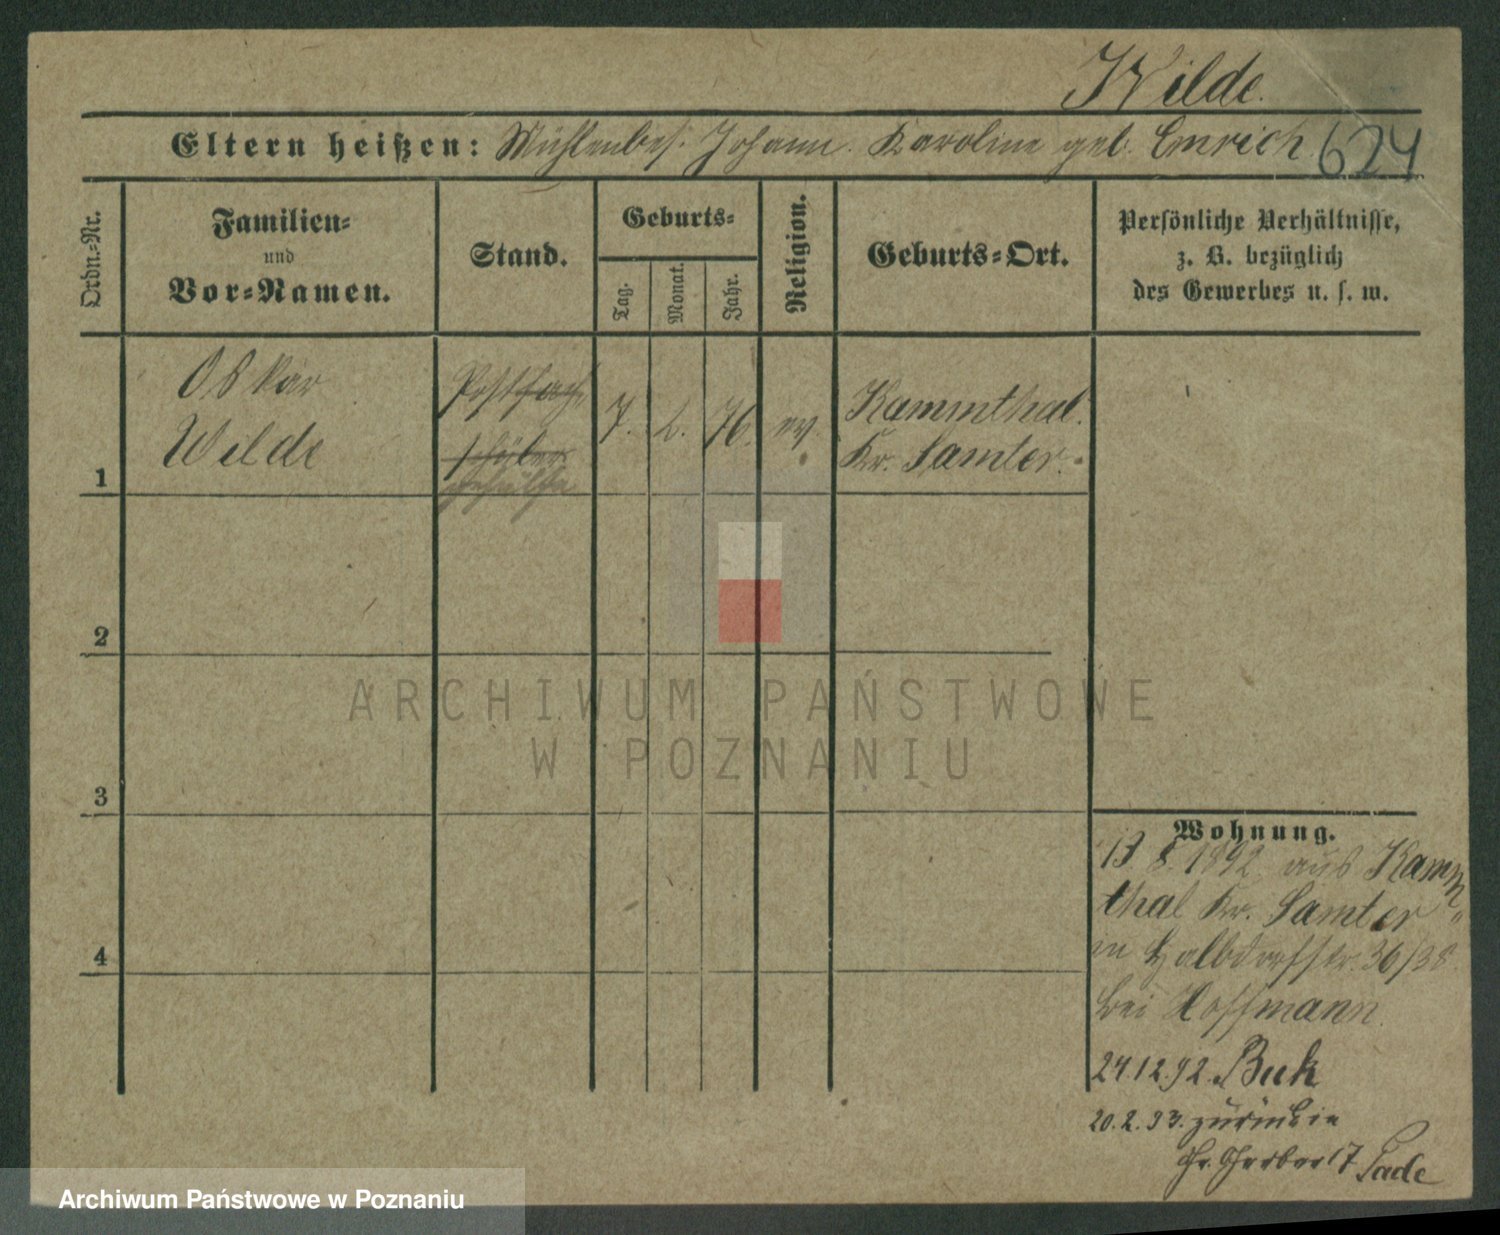 Wilde.
Eltern heißen: Mühlenbes. Johann. Karoline geb. Emrich
624
Ordn.-Nr.
Familien-
und
Vor-Namen.
Stand.
Geburts-
Tag.
Monat.
Jahr.
Religion.
Geburts-Ort.
Persönliche Verhältnisse,
z. B. bezüglich
des Gewerbes u. s. w.
1
Oskar
Wilde
Postfach
schüler
gehülfe
7.
2.
76.
ev.
Kammthal.
Kr. Samter.
2
3
4
Wohnung.
13 8. 1892 aus Kamm
thal Kr. Samter
in Halbdorfstr. 36/38
bei Hoffmann
24.12.92. Buk
20.2.93. zurück in
Gr. Gerber 17 Lade
ARCHIWUM PAŃSTWOWE
W POZNANIU
Archiwum Państwowe w Poznaniu